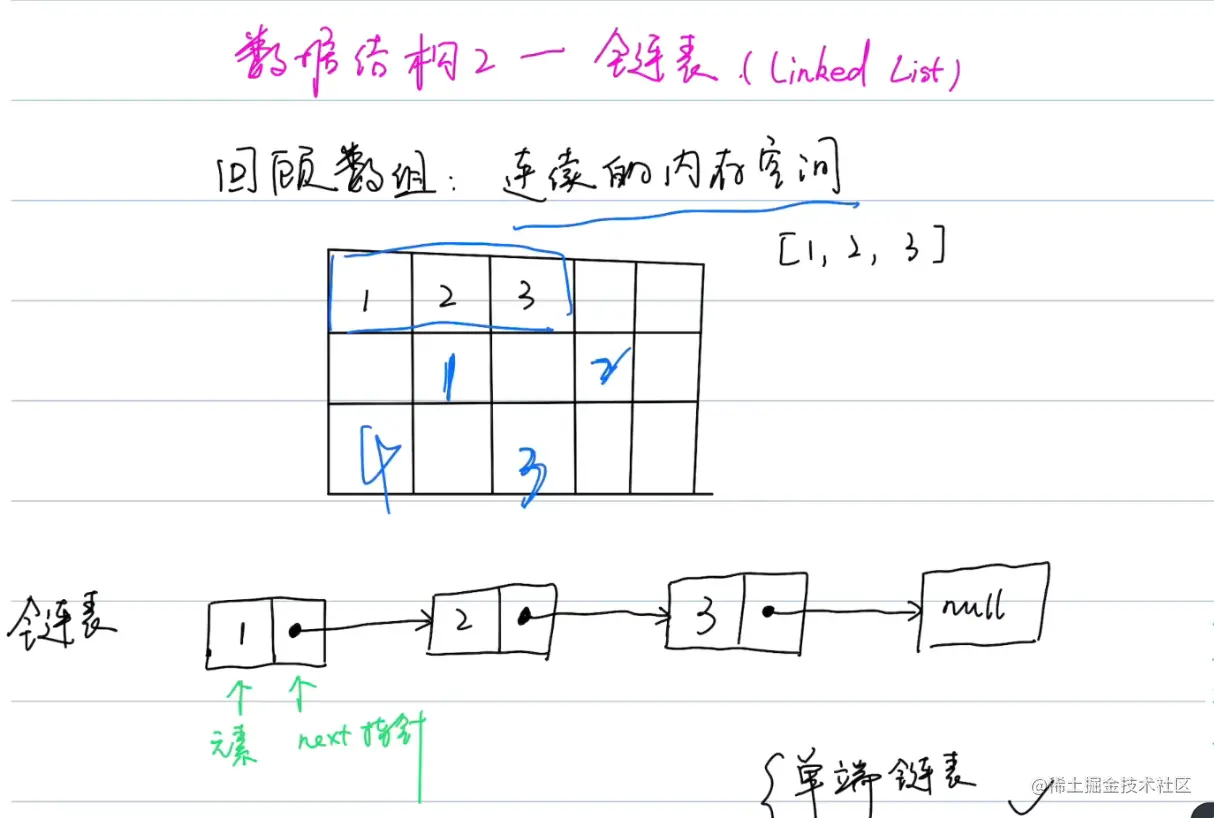 数据结构2 — 链表.(Linked List)
回顾数组: 连续的内存空间
[1, 2, 3]
1 2 3
1 2
4 3
链表 1 2 3 null
元素 next指针
{单端链表 ✓
@稀土掘金技术社区